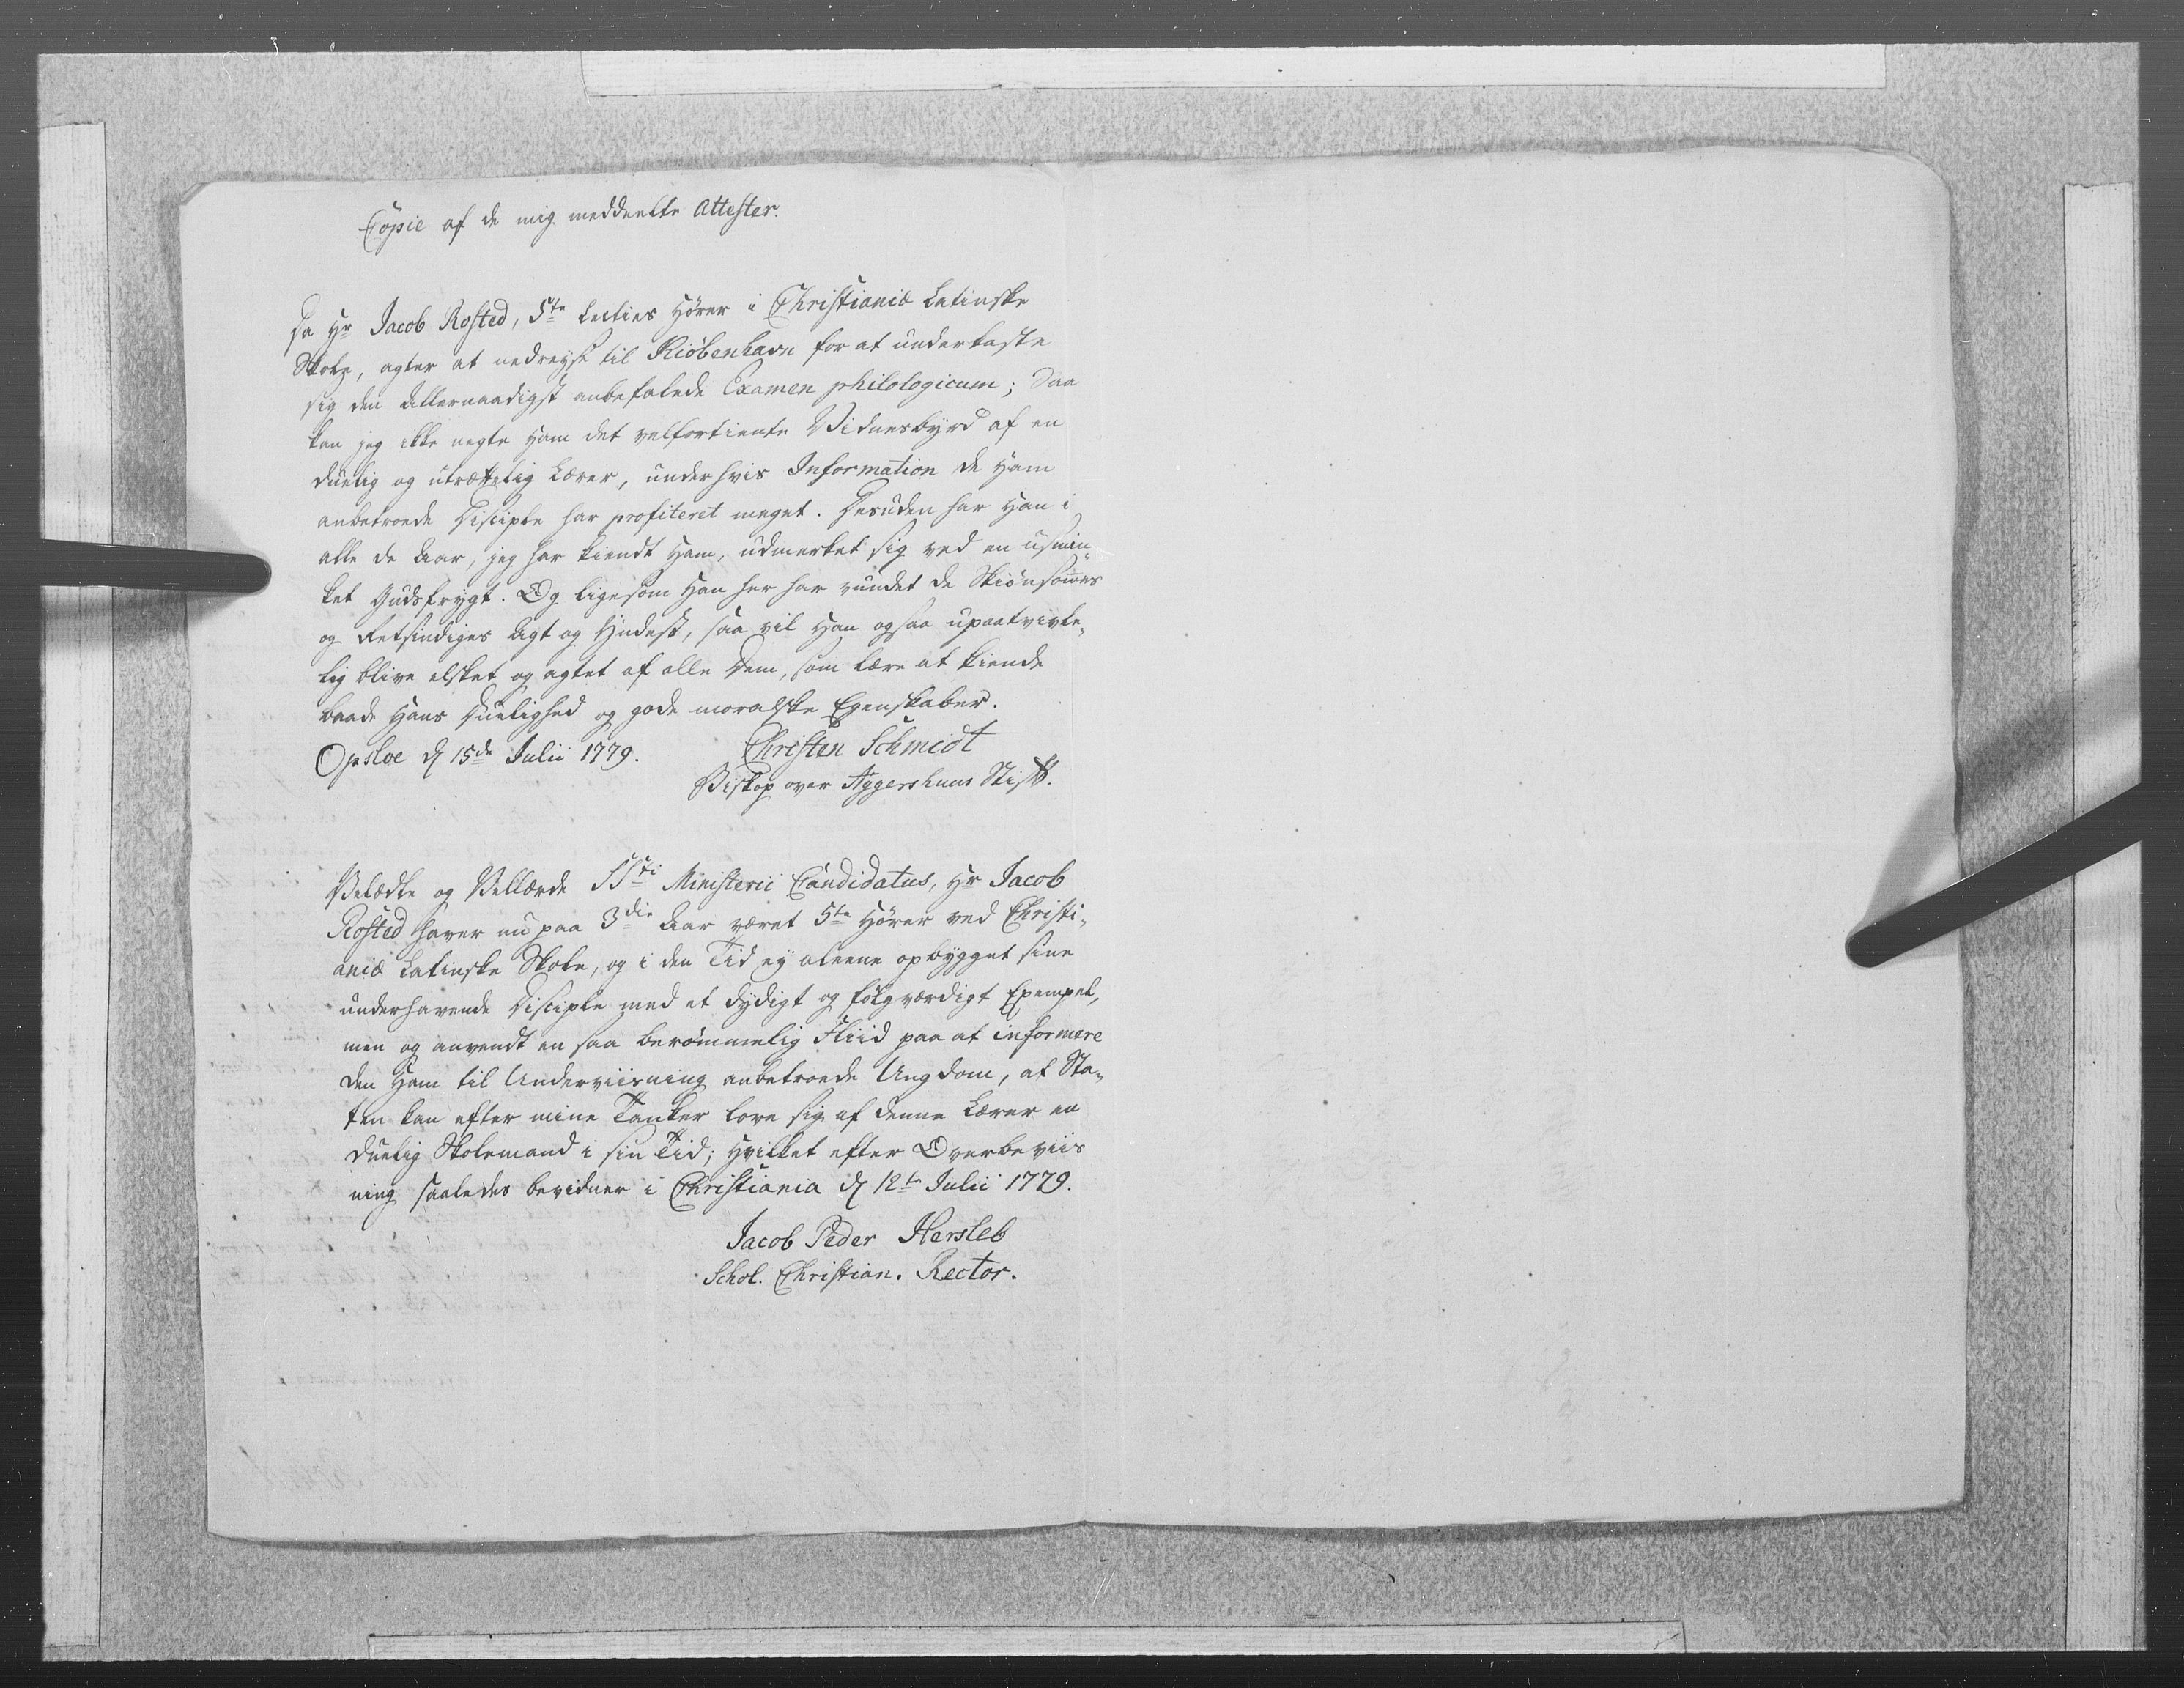 Copie af de mig meddeelte Attester.
Da Hr Jacob Rosted, 5te Lecties Hører i Christianiæ Latinske
Skole, agter at nedreyse til Kiöbenhavn for at underkaste
sig den Allernaadigst anbefalede Examen philologicum; Saa
kan jeg ikke negte Ham det velfortiente Vidnesbyrd af en
duelig og utrættelig Lærer, under hvis Information de Ham
anbetroede Disciple har profiteret meget. Desuden har Han i
alle de Aar, jeg har kiendt Ham, udmerket sig ved en usmin-
ket Gudsfrygt. Og ligesom Han her har vundet de Skiønsommes
og Retsindiges Agt og Yndest, saa vil Han ogsaa upaatvivle-
lig blive elsket og agtet af alle Dem, som lære at kiende
baade Hans Duelighed og gode moralske Egenskaber.
Opsloe d 15de Julii 1779. Christen Schmidt
Biskop over Aggershuus Stift.
Velædle og Vellærde SSti Ministerii Candidatus, Hr Jacob
Rosted haver nu paa 3die Aar været 5te Hører ved Christi-
aniæ Latinske Skole, og i den Tid ey aleene opbygget sine
underhavende Disciple med et dydigt og følgværdigt Exempel,
men og anvendt en saa berömmelig Fliid paa at informere
den Ham til Underviisning anbetroede Ungdom, at Sta-
ten kan efter mine Tanker love sig af denne Lærer en
duelig Skolemand i sin Tid; hvilket efter Overbeviis
ning saaledes bevidner i Christiania d 12te Julii 1779.
Jacob Peder Hersleb
Schol. Christian. Rector.